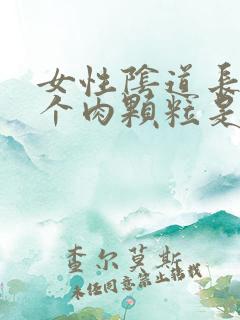 女性陰道長
个肉顆粒是
查尔莫斯
未经同意禁止转载